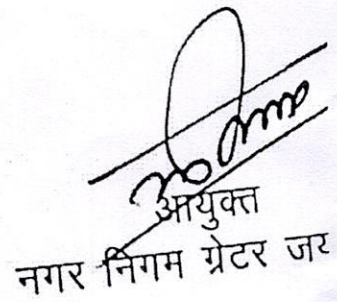 आयुक्त
नगर निगम ग्रेटर जय